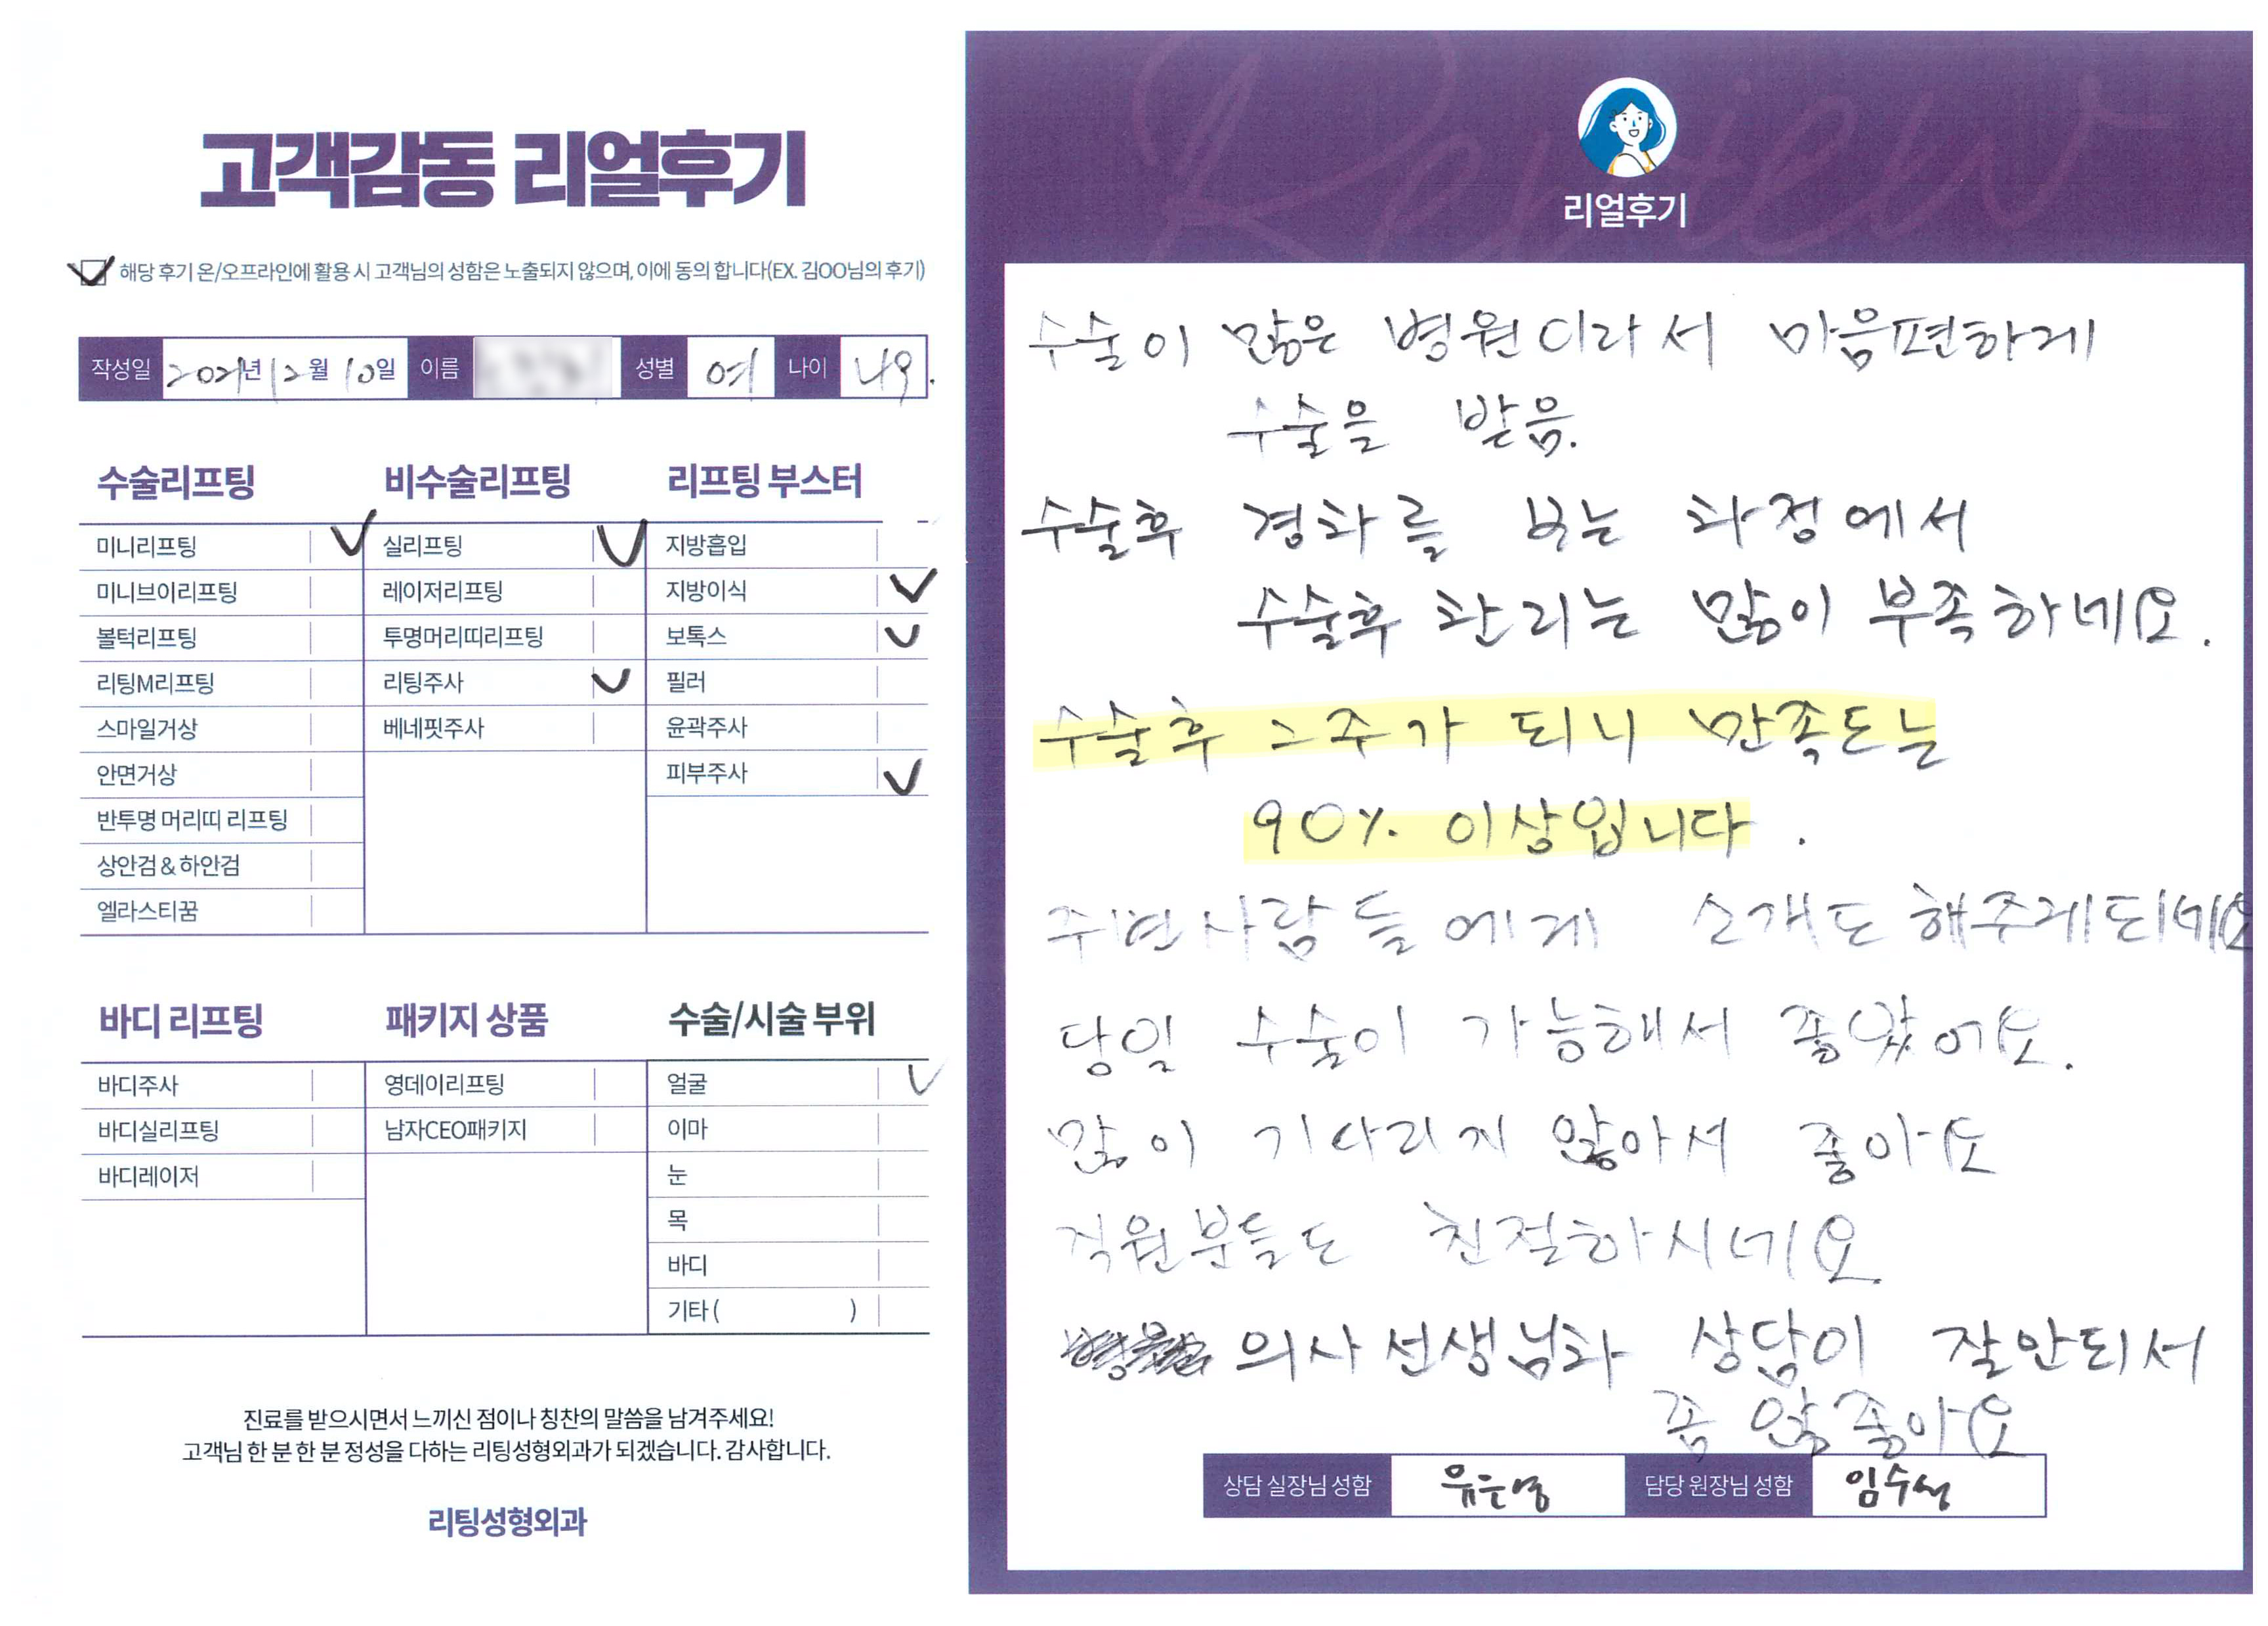 고객감동 리얼후기
해당 후기 온/오프라인에 활용 시 고객님의 성함은 노출되지 않으며, 이에 동의 합니다(EX. 김OO님의 후기)
작성일 2021년 12월 10일 이름 성별 여 나이 49.
수술리프팅 비수술리프팅 리프팅 부스터
미니리프팅 실리프팅 지방흡입
미니브이리프팅 레이저리프팅 지방이식
볼턱리프팅 투명머리띠리프팅 보톡스
리팅M리프팅 리팅주사 필러
스마일거상 베네핏주사 윤곽주사
안면거상 피부주사
반투명 머리띠 리프팅
상안검 & 하안검
엘라스티꿈
바디 리프팅 패키지 상품 수술/시술 부위
바디주사 영데이리프팅 얼굴
바디실리프팅 남자CEO패키지 이마
바디레이저 눈
목
바디
기타 ( )
진료를 받으시면서 느끼신 점이나 칭찬의 말씀을 남겨주세요!
고객님 한 분 한 분 정성을 다하는 리팅성형외과가 되겠습니다. 감사합니다.
리팅성형외과
Review
리얼후기
수술이 많은 병원이라서 마음편하게
수술을 받음.
수술후 경과를 보는 과정에서
수술후 관리는 많이 부족하네요.
수술후 2주가 되니 만족도는
90% 이상입니다.
주변사람들에게 소개도 해주게되네요
당일 수술이 가능해서 좋았어요.
많이 기다리지 않아서 좋아요
직원분들도 친절하시네요
의사선생님과 상담이 잘안되서
좀 않좋아요
상담 실장님 성함 유은영 담당 원장님 성함 임수성